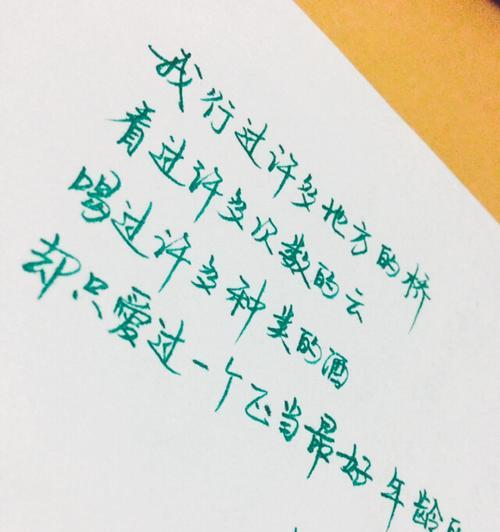 我行过许多地方的桥
看过许多次数的云
喝过许多种类的酒
却只爱过一个正当最好年龄的